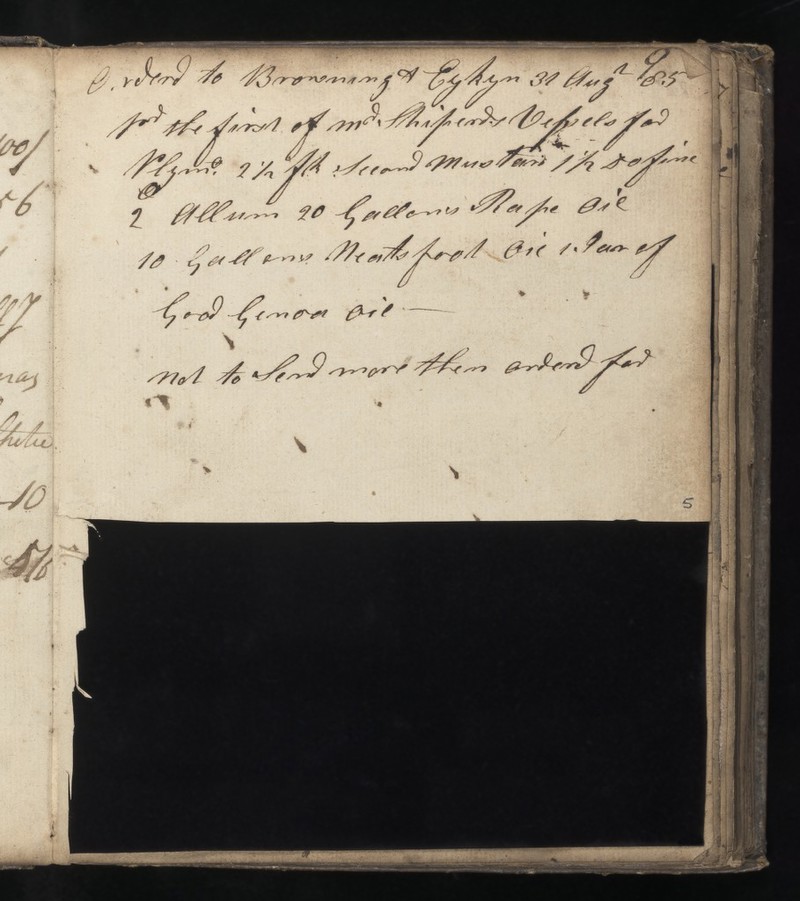 00/
56
Orderd to Browning & Eykyn 31 Augt 85
pr the first of Mr Shiperds Vessels for
Plymo 2 1/2 fk Second Mustard 1 1/2 Do fine
2 Allum 20 Gallons Rape Oil
10 Gallons Neatsfoot Oil 1 Jar of
Good Genoa Oil —
not to Send more then orderd for
10
5